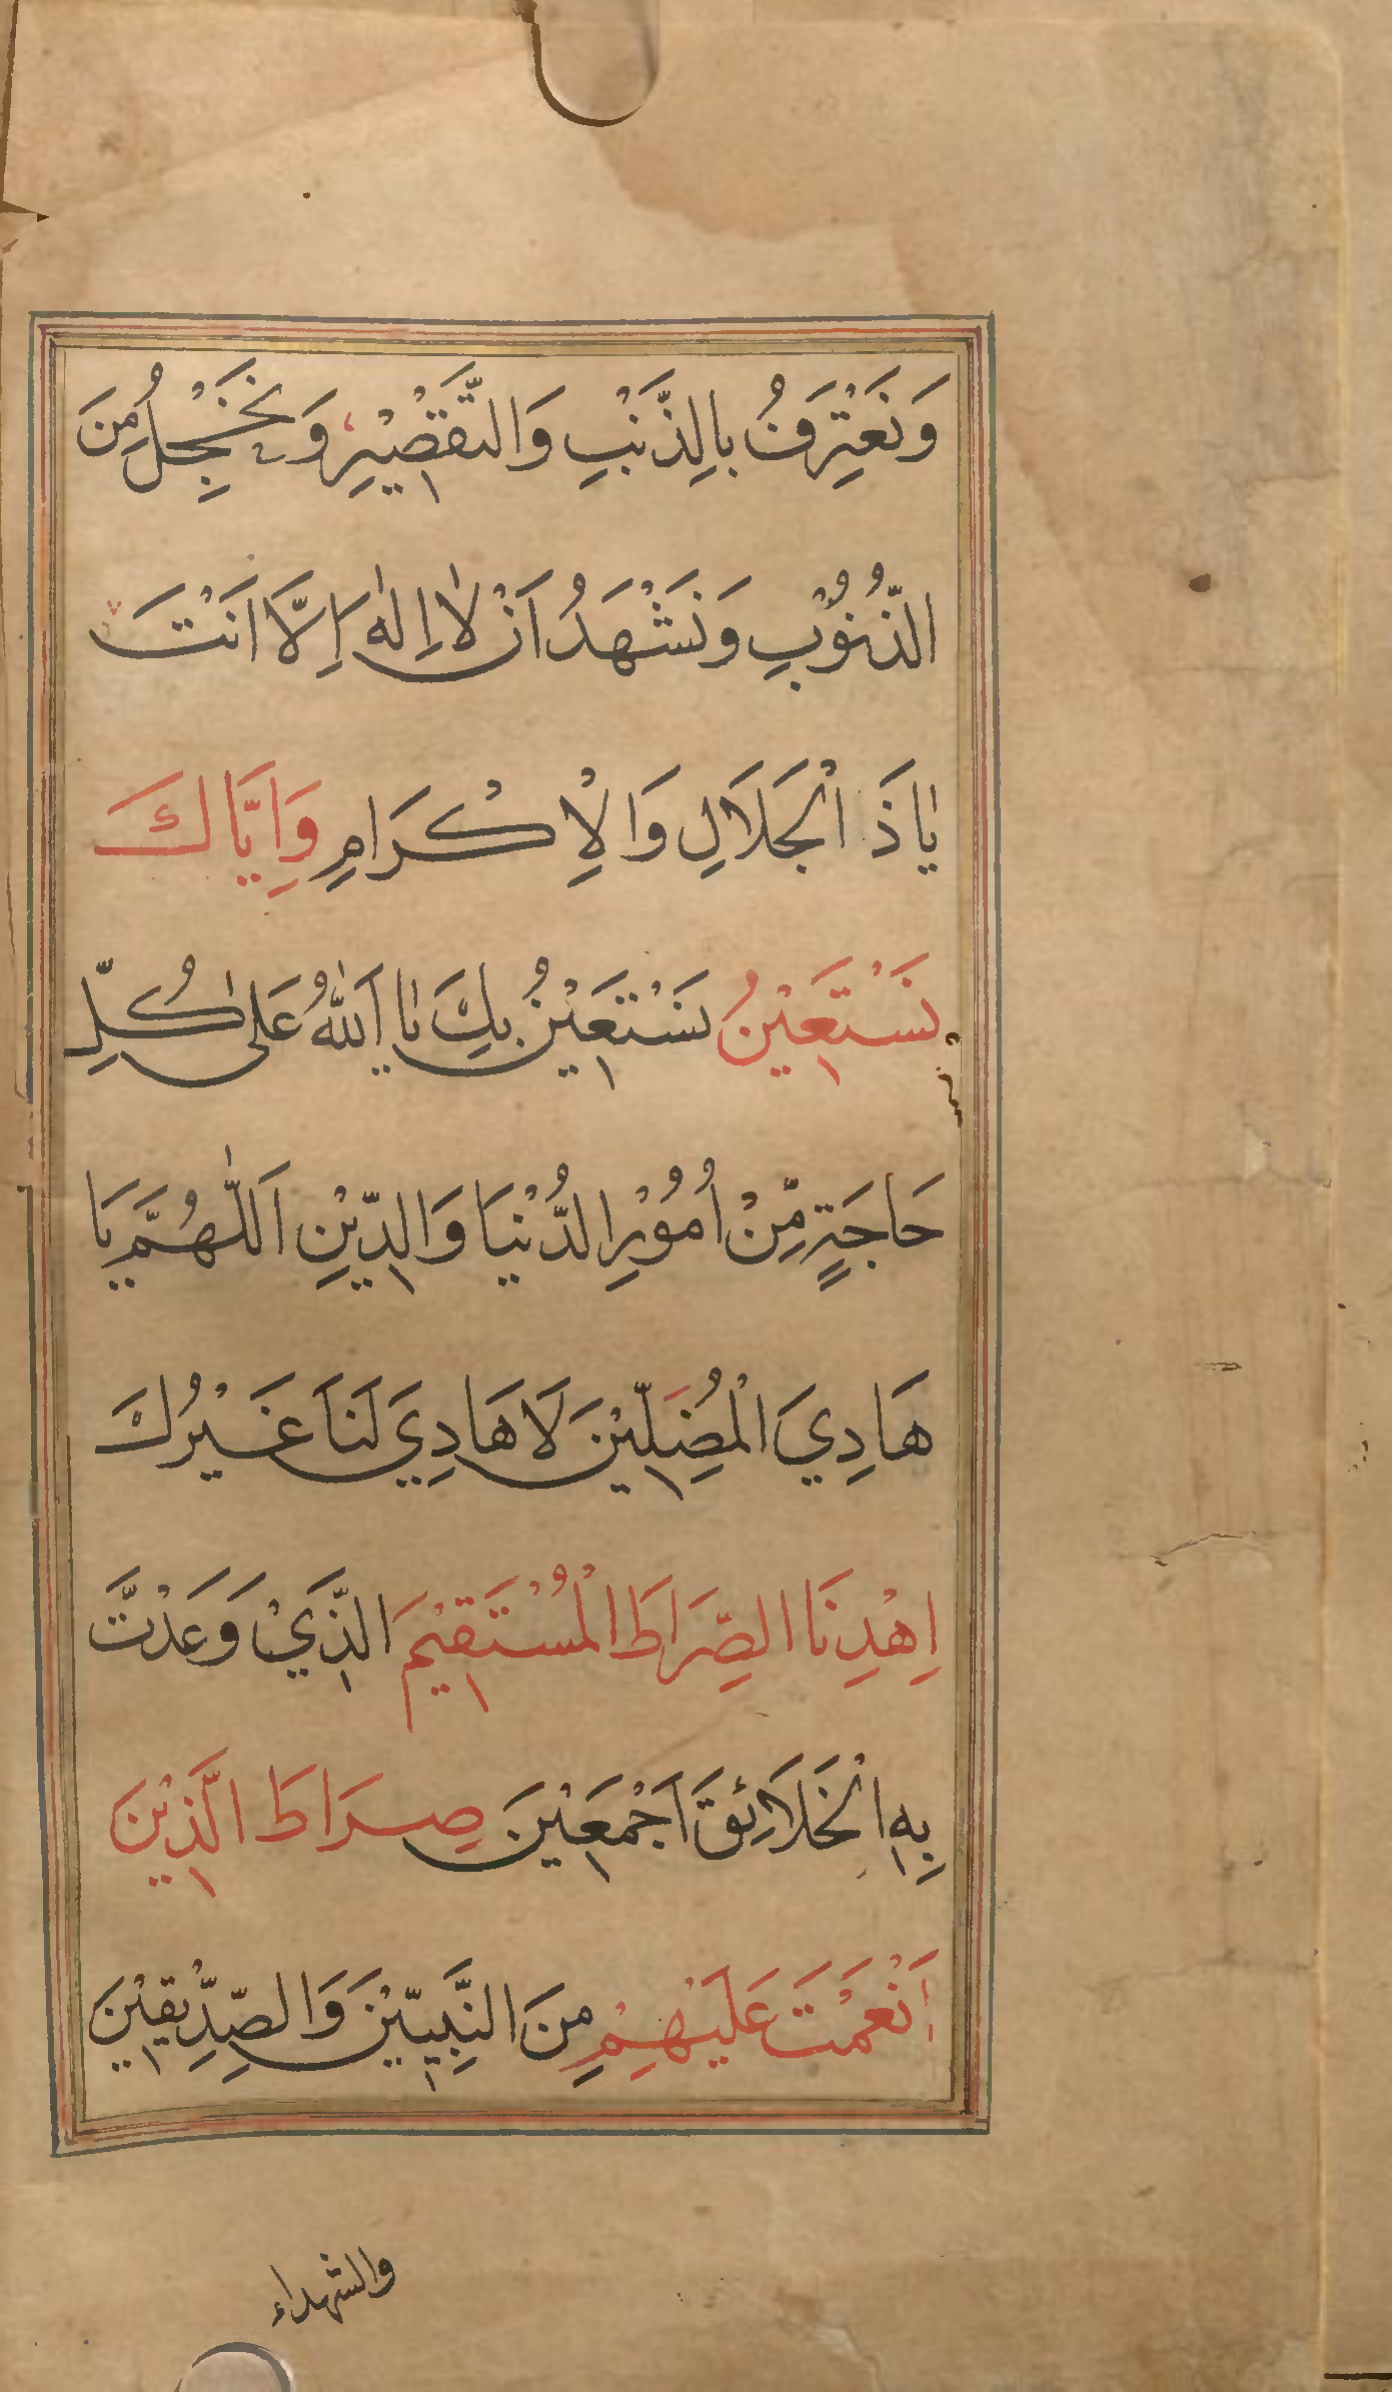 وَنَعْتَرِفُ بِالذَّنْبِ وَالتَّقْصِيْرِ وَنَخْجِلُ مِنَ
الذُّنُوْبِ وَنَشْهَدُ اَنْ لَا اِلٰهَ اِلَّا اَنْتَ
يَاذَ الْجَلَالِ وَالْاِكْرَامِ وَاِيَّاكَ
نَسْتَعِيْنُ نَسْتَعِيْنُ بِكَ يَا اَللّٰهُ عَلٰى كُلِّ
حَاجَةٍ مِّنْ اُمُوْرِ الدُّنْيَا وَالدِّيْنِ اَللّٰهُمَّ يَا
هَادِيَ الْمُضِلِّيْنَ لَا هَادِيَ لَنَا غَيْرُكَ
اِهْدِنَا الصِّرَاطَ الْمُسْتَقِيْمَ الَّذِيْ وَعَدْتَّ
بِهِ الْخَلَائِقَ اَجْمَعِيْنَ صِرَاطَ الَّذِيْنَ
اَنْعَمْتَ عَلَيْهِمْ مِنَ النَّبِيّيْنَ وَالصِّدِّيْقِيْنَ
والشهداء